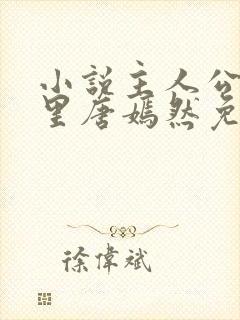 小説主人公
里唐嫣然免
徐偉斌